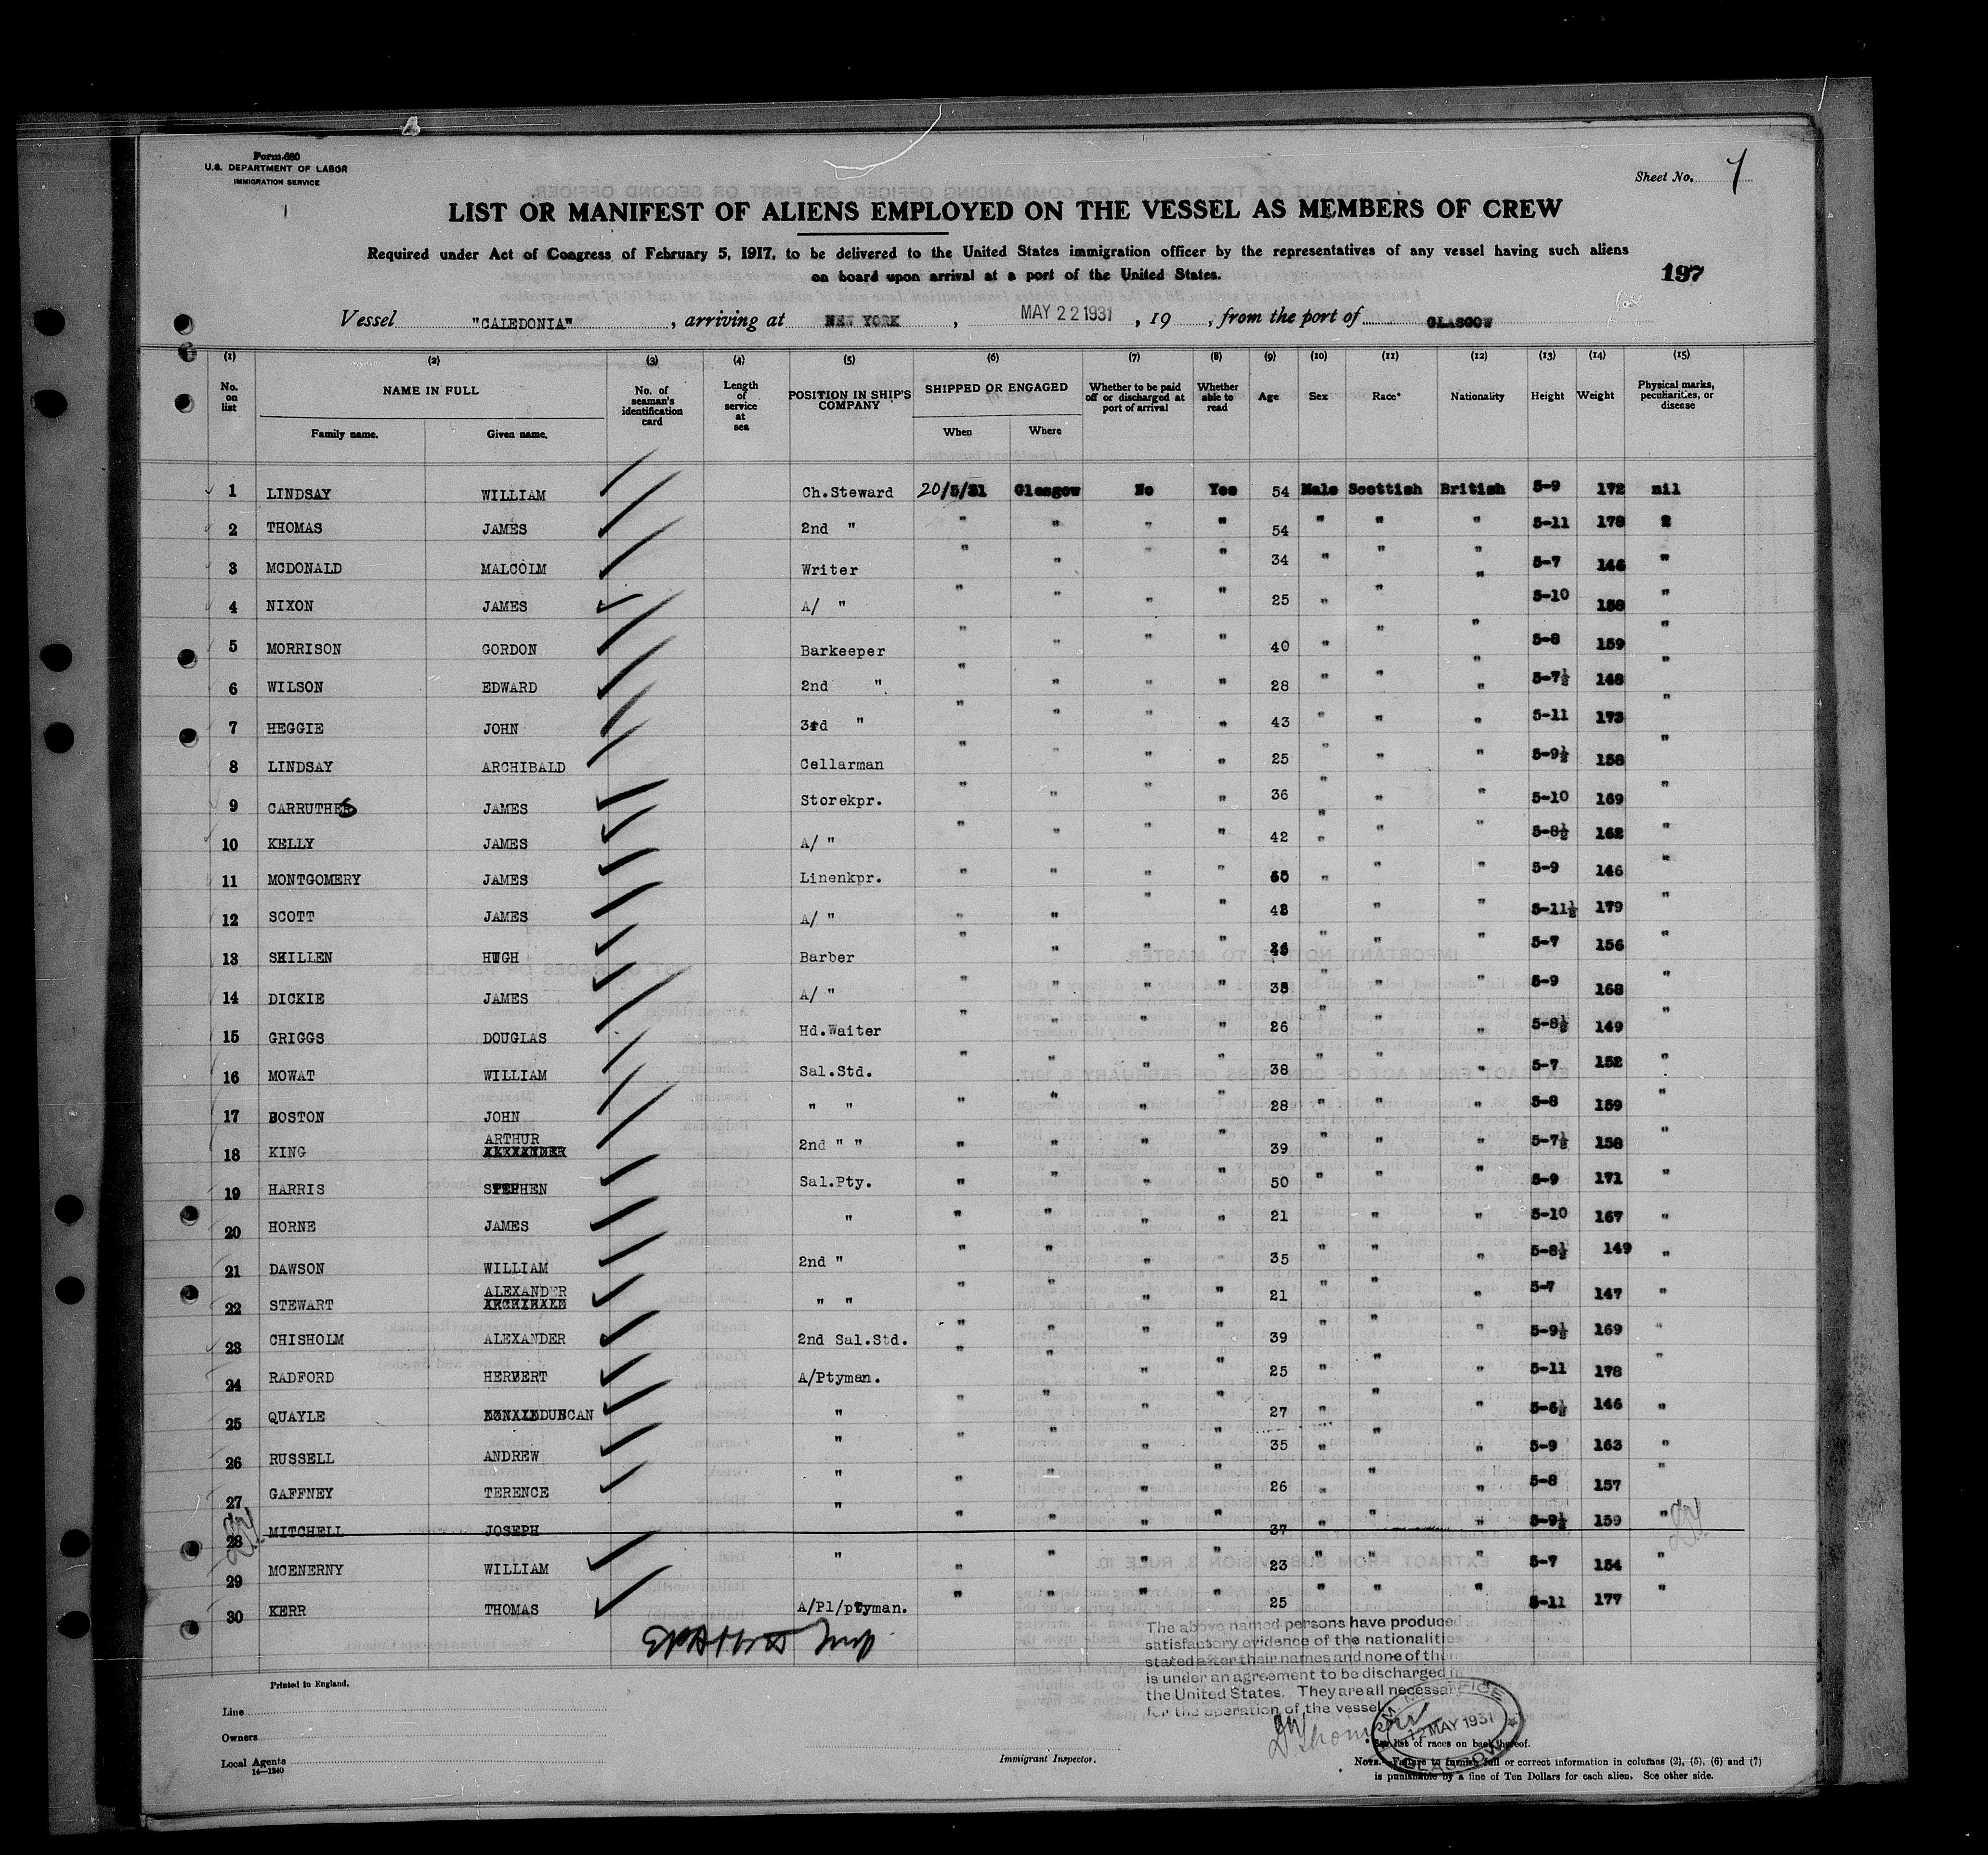 Form 680
U.S. DEPARTMENT OF LABOR
IMMIGRATION SERVICE
Sheet No. 7
LIST OR MANIFEST OF ALIENS EMPLOYED ON THE VESSEL AS MEMBERS OF CREW
Required under Act of Congress of February 5, 1917, to be delivered to the United States immigration officer by the representatives of any vessel having such aliens
on board upon arrival at a port of the United States.
197
Vessel "CALEDONIA", arriving at NEW YORK, MAY 22 1931, 19 , from the port of GLASGOW
(1) (2) (3) (4) (5) (6) (7) (8) (9) (10) (11) (12) (13) (14) (15)
No. on list NAME IN FULL Family name. Given name. No. of seaman's identification card Length of service at sea POSITION IN SHIP'S COMPANY SHIPPED OR ENGAGED When Where Whether to be paid off or discharged at port of arrival Whether able to read Age Sex Race* Nationality Height Weight Physical marks, peculiarities, or disease
1 LINDSAY WILLIAM Ch.Steward 20/5/31 Glasgow No Yes 54 Male Scottish British 5-9 172 nil
2 THOMAS JAMES 2nd " " " " " 54 " " " 5-11 178
3 MCDONALD MALCOLM Writer " " " " 34 " " " 5-7 146 "
4 NIXON JAMES A/ " " " " " 25 " " " 5-10 158 "
5 MORRISON GORDON Barkeeper " " " " 40 " " " 5-8 159 "
6 WILSON EDWARD 2nd " " " " " 28 " " " 5-7½ 148 "
7 HEGGIE JOHN 3rd " " " " " 43 " " " 5-11 173 "
8 LINDSAY ARCHIBALD Cellarman " " " " 25 " " " 5-9½ 158 "
9 CARRUTHES JAMES Storekpr. " " " " 36 " " " 5-10 169 "
10 KELLY JAMES A/ " " " " " 42 " " " 5-8½ 162 "
11 MONTGOMERY JAMES Linenkpr. " " " " " " " 5-9 146 "
12 SCOTT JAMES A/ " " " " " 48 " " 5-11½ 179 "
13 SKILLEN HUGH Barber " " " " " " " 5-7 156 "
14 DICKIE JAMES A/ " " " " " 35 " " " 5-9 168 "
15 GRIGGS DOUGLAS Hd.Waiter " " " " 26 " " " 5-8½ 149 "
16 MOWAT WILLIAM Sal.Std. " " " " 38 " " " 5-7 152 "
17 BOSTON JOHN " " " " " " 28 " " " 5-8 159 "
18 KING ARTHUR 2nd " " " " " " 39 " " " 5-7½ 158 "
19 HARRIS STEPHEN Sal.Pty. " " " " 50 " " " 5-9 171 "
20 HORNE JAMES " " " " " 21 " " " 5-10 167 "
21 DAWSON WILLIAM 2nd " " " " " 35 " " " 5-8½ 149 "
22 STEWART ALEXANDER " " " " " " 21 " " " 5-7 147 "
23 CHISHOLM ALEXANDER 2nd Sal.Std. " " " " 39 " " " 5-9½ 169 "
24 RADFORD HERBERT A/Ptyman. " " " " 25 " " " 5-11 178 "
25 QUAYLE DUNCAN " " " " " 27 " " " 5-6½ 146 "
26 RUSSELL ANDREW " " " " " 35 " " " 5-9 163 "
27 GAFFNEY TERENCE " " " " " 26 " " " 5-8 157 "
28 MITCHELL JOSEPH " " " " " 37 " " 5-9½ 159 "
29 MCENERNY WILLIAM " " " " " 23 " " " 5-7 154 "
30 KERR THOMAS A/Pl/ptyman. " " " " 25 " " " 5-11 177 "
The above named persons have produce
satisfactory evidence of the nationalitie
stated after their names and none of them
is under an agreement to be discharged in
the United States. They are all necessar
for the operation of the vessel.
M. M. OFFICE
12 MAY 1931
GLASGOW
Printed in England.
Line
Owners
Local Agents
14—1240
Immigrant Inspector.
See list of races on back thereof.
NOTE.—Failure to furnish full or correct information in columns (2), (5), (6) and (7)
is punishable by a fine of Ten Dollars for each alien. See other side.